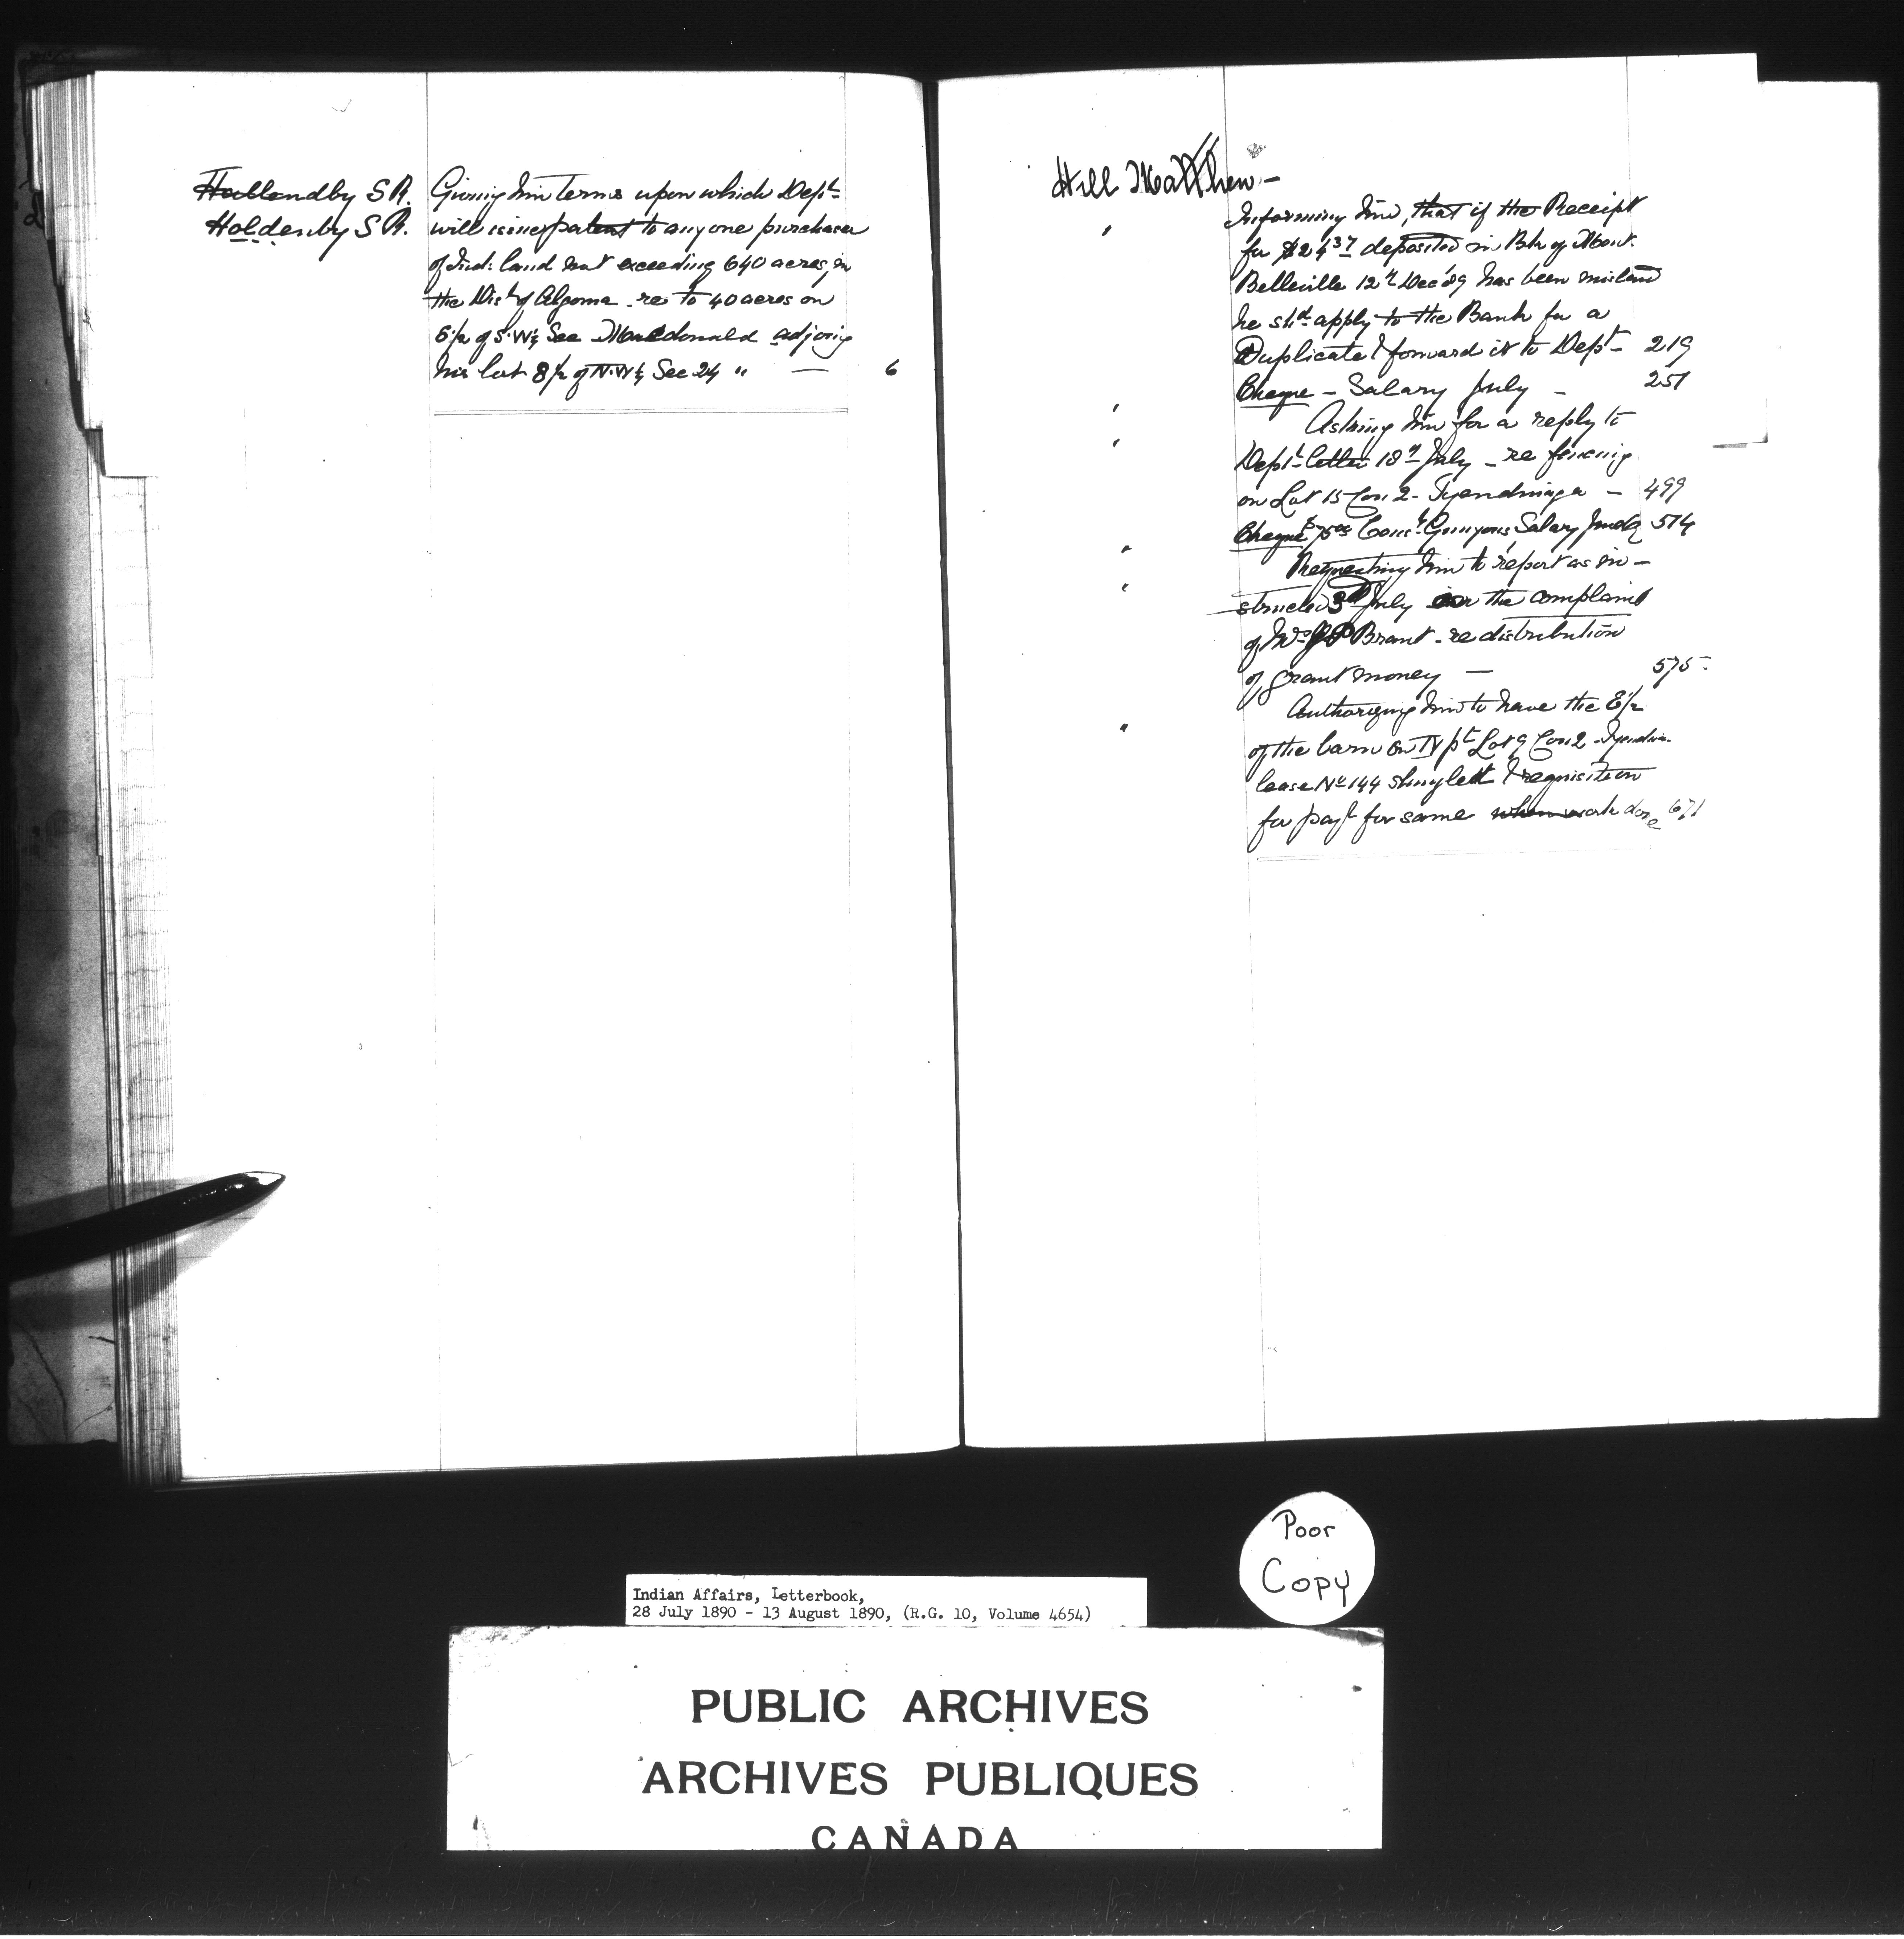 Hollendby S R.
Holdenby S R.
Giving him terms upon which Dept
will issue patent to any one purchaser
of Ind: land not exceeding 640 acres, in
the Dist of Algoma - re to 40 acres on
E½ of S.W¼ Sec Macdonald adjoing
his lot S½ of N.W¼ Sec 24 " — 6
Hill Matthew -
Informing him, that if the Receipt
for $24 37 deposited in Bk of Mont.
Belleville 12th Dec '89 has been mislaid
he shd apply to the Bank for a
Duplicate & forward it to Dept - 219
Cheque - Salary July - 251
Asking him for a reply to
Dept letter 18th July - re fencing
on Lot 15 Con 2 - Tyendinaga - 499
Cheque Salary 514
Requesting him to report as in-
structed 3rd July on the complaint
of Mrs Brant - re distribution
of grant money — 575
Authorizing him to have the E½
of the barn on W pt Lot 9 Con 2 - Tyendin-
lease No 144 shingled & requisition
for payt for same when work done 671
Poor
Copy
Indian Affairs, Letterbook,
28 July 1890 - 13 August 1890, (R.G. 10, Volume 4654)
PUBLIC ARCHIVES
ARCHIVES PUBLIQUES
CANADA